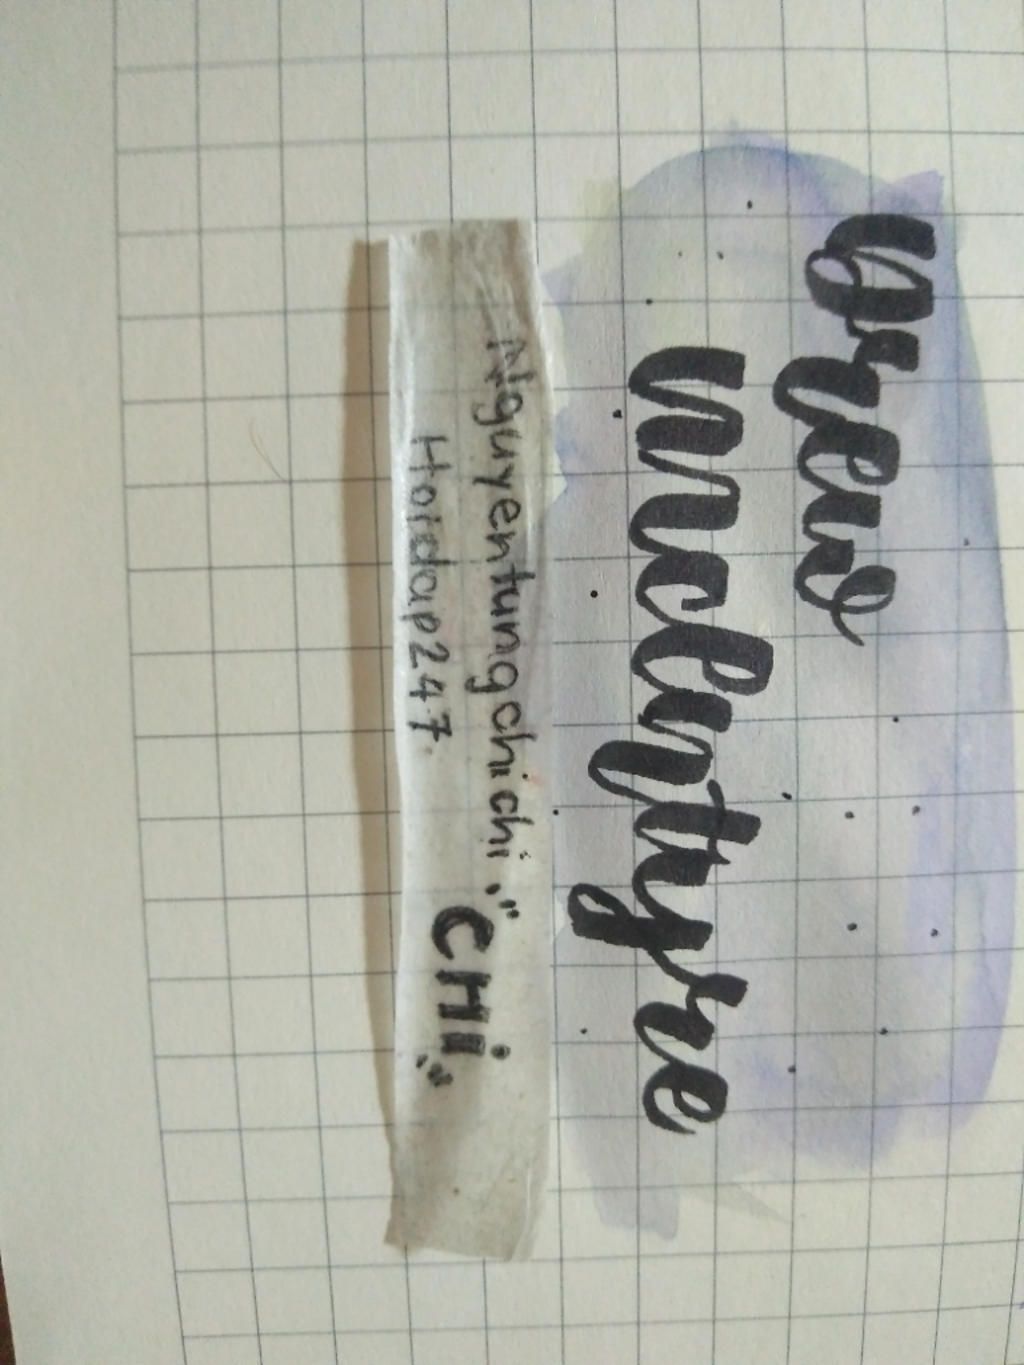 Drew
McIntyre
Nguyentungchichi.
"CHi"
Hoidap247.